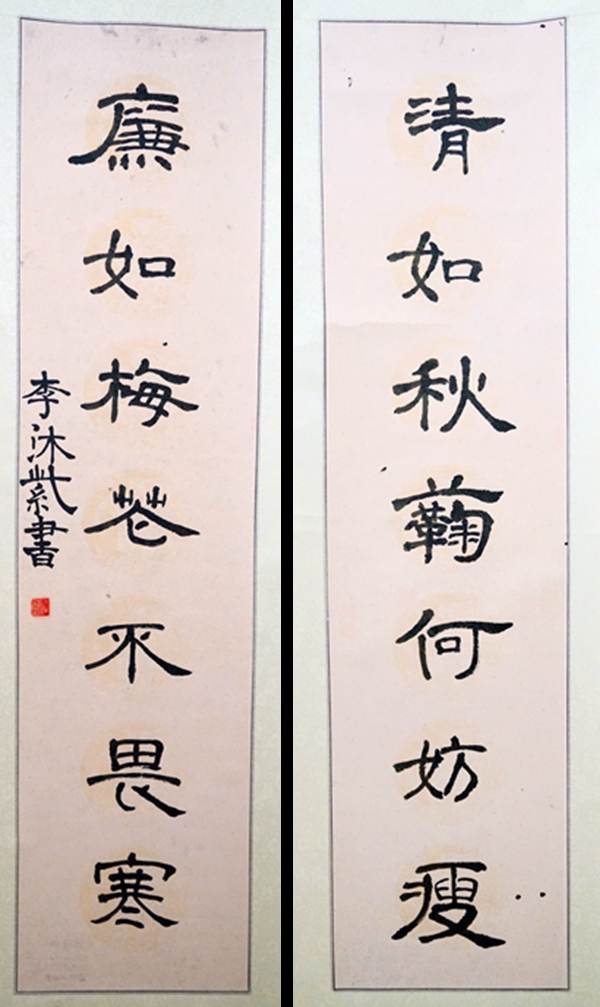 清如秋鞠何妨瘦
廉如梅花不畏寒
李沐紫書